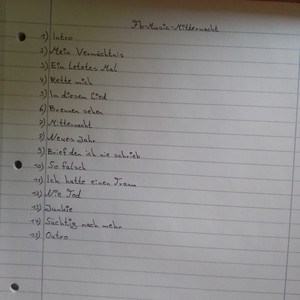 Flo-Music-Mitternacht
1) Intro
2) Mein Vermächtnis
3) Ein Letztes Mal
4) Rette mich
5) In diesem Lied
6) Brennen sehen
7) Mitternacht
8) Neues Jahr
9) Brief den ich nie schrieb
10) So falsch
11) Ich hatte einen Traum
12) Nie Tod
13) Junkie
14) Süchtig nach mehr
15) Outro